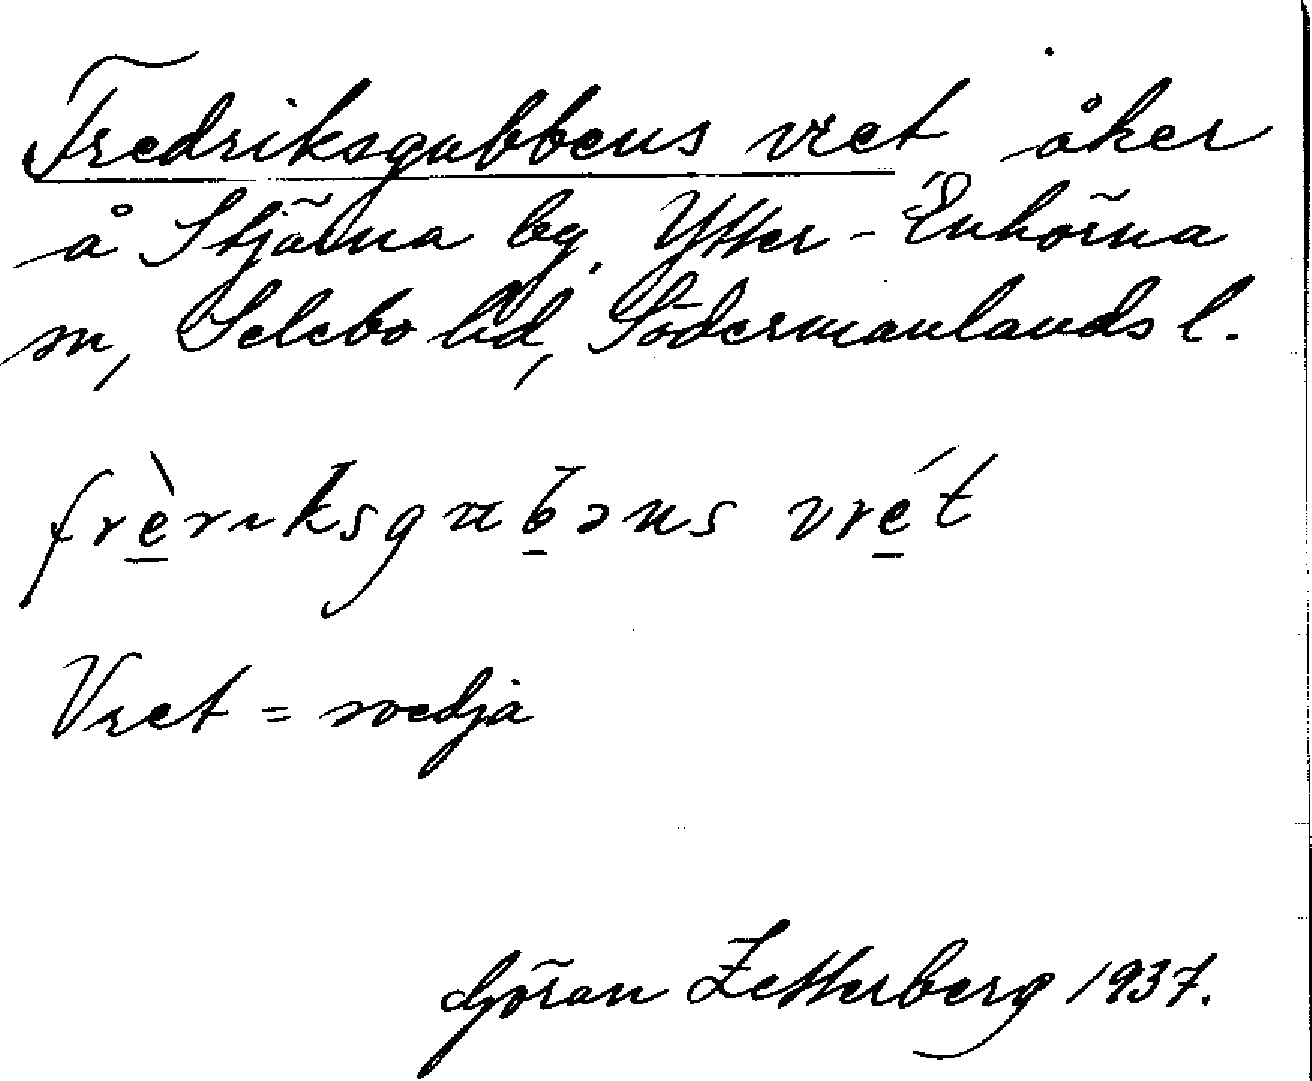 Fredriksgubbens vret åker
å Stjärna by, Ytter-Enhörna
sn, Selebo hd, Södermanlands l.
frè̱rıksguḇ̄əns vré̱t
Vret = svedja
Göran Zetterberg 1937.